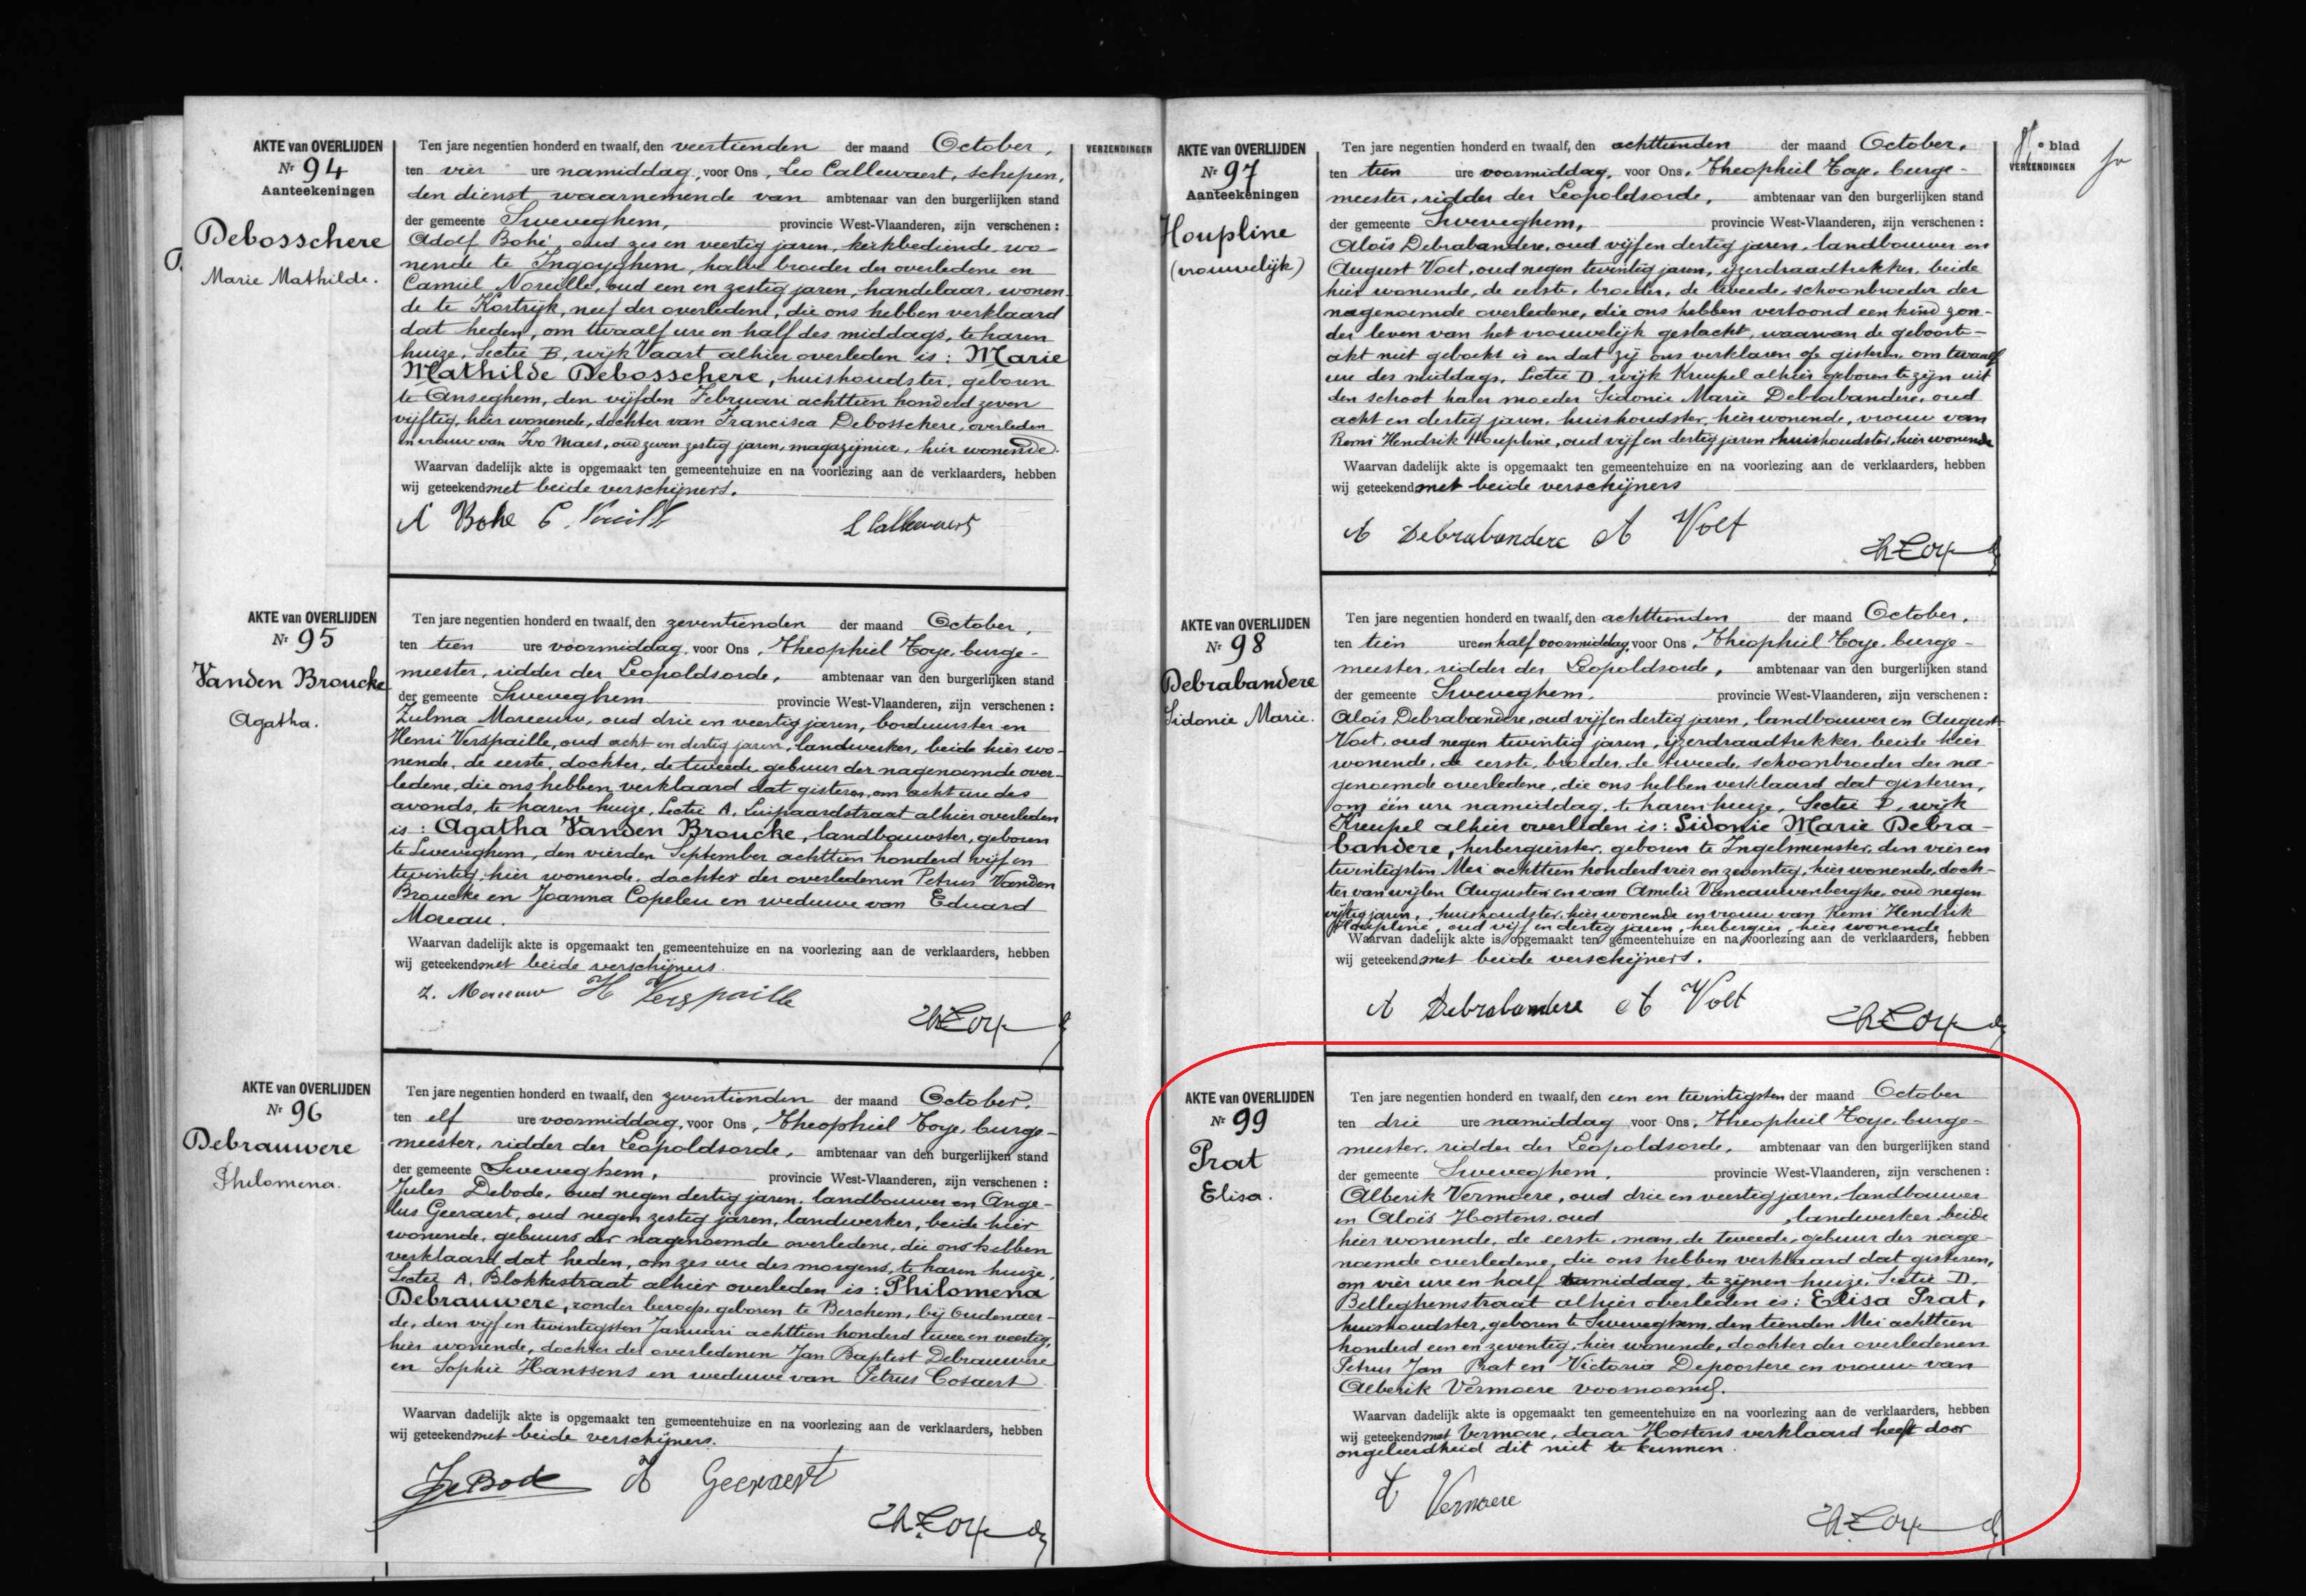 AKTE van OVERLIJDEN
Nr 94
Aanteekeningen
Debosschere
Marie Mathilde.
Ten jare negentien honderd en twaalf, den veertienden der maand October,
ten vier ure namiddag, voor Ons, Leo Callewaert, schepen,
den dienst waarnemende van ambtenaar van den burgerlijken stand
der gemeente Sweveghem, provincie West-Vlaanderen, zijn verschenen :
Adolf Bohé, oud zes en veertig jaren, kerkbediende, wo-
nende te Ingoyghem, halve broeder der overledene en
Camiel Noreille, oud een en zestig jaren, handelaar, wonen-
de te Kortrijk, neef der overledene, die ons hebben verklaard
dat heden, om twaalf ure en half des middags, te haren
huize, Sectie B, wijk Vaart alhier overleden is : Marie
Mathilde Debosschere, huishoudster, geboren
te Anseghem, den vijfden Februari achttien honderd zeven
vijftig, hier wonende, dochter van Francisca Debosschere, overleden
en vrouw van Ivo Maes, oud zeven zestig jaren, magazijnier, hier wonende.
Waarvan dadelijk akte is opgemaakt ten gemeentehuize en na voorlezing aan de verklaarders, hebben
wij geteekend met beide verschijners.
A Bohe C. L Callewaert
VERZENDINGEN
AKTE van OVERLIJDEN
Nr 95
Vanden Broucke
Agatha.
Ten jare negentien honderd en twaalf, den zeventienden der maand October,
ten tien ure voormiddag, voor Ons, Theophiel Toye, burge-
meester, ridder der Leopoldsorde, ambtenaar van den burgerlijken stand
der gemeente Sweveghem provincie West-Vlaanderen, zijn verschenen :
Zulma Moreeuw, oud drie en veertig jaren, borduurster en
Henri Verspaille, oud acht en dertig jaren, landwerker, beide hier wo-
nende, de eerste, dochter, de tweede gebuur der nagenoemde over-
ledene, die ons hebben verklaard dat gisteren, om acht ure des
avonds, te haren huize, Sectie A, Luipaardstraat alhier overleden
is : Agatha Vanden Broucke, landbouwster, geboren
te Sweveghem, den vierden September achttien honderd vijf en
twintig, hier wonende, dochter der overledenen Petrus Vanden
Broucke en Joanna Copeleu en weduwe van Eduard
Moreau.
Waarvan dadelijk akte is opgemaakt ten gemeentehuize en na voorlezing aan de verklaarders, hebben
wij geteekend met beide verschijners.
Z. Moreeuw H Verspaille
Th Toye
AKTE van OVERLIJDEN
Nr 96
Debrauwere
Philomena.
Ten jare negentien honderd en twaalf, den zeventienden der maand October,
ten elf ure voormiddag, voor Ons, Theophiel Toye, burge-
meester, ridder der Leopoldsorde, ambtenaar van den burgerlijken stand
der gemeente Sweveghem, provincie West-Vlaanderen, zijn verschenen :
Jules Debode, oud negen dertig jaren, landbouwer en Ange-
lus Geeraert, oud negen zestig jaren, landwerker, beide hier
wonende, gebuurs der nagenoemde overledene, die ons hebben
verklaard dat heden, om zes ure des morgens, te haren huize,
Sectie A, Blokkestraat alhier overleden is : Philomena
Debrauwere, zonder beroep, geboren te Berchem, bij Oudenaer-
de, den vijf en twintigsten Januari achttien honderd twee en veertig,
hier wonende, dochter der overledenen Jan Baptist Debrauwere
en Sophie Hanssens en weduwe van Petrus Cosaert
Waarvan dadelijk akte is opgemaakt ten gemeentehuize en na voorlezing aan de verklaarders, hebben
wij geteekend met beide verschijners.
J DeBode A Geeraert
Th Toye
AKTE van OVERLIJDEN
Nr 97
Aanteekeningen
Houpline
(vrouwelijk)
Ten jare negentien honderd en twaalf, den achttienden der maand October,
ten tien ure voormiddag, voor Ons, Theophiel Toye, burge-
meester, ridder der Leopoldsorde, ambtenaar van den burgerlijken stand
der gemeente Sweveghem, provincie West-Vlaanderen, zijn verschenen :
Aloïs Debrabandere, oud vijf en dertig jaren, landbouwer en
August Voet, oud negen twintig jaren, ijzerdraadtrekker, beide
hier wonende, de eerste, broeder, de tweede, schoonbroeder der
nagenoemde overledene, die ons hebben vertoond een kind zon-
der leven van het vrouwelijk geslacht, waarvan de geboorte-
akt niet geboekt is en dat zij ons verklaren op gisteren, om twaalf
ure des middags, Sectie D, wijk Kreupel alhier geboren te zijn uit
den schoot haler moeder Sidonie Marie Debrabandere, oud
acht en dertig jaren, huishoudster, hier wonende, vrouw van
Remi Hendrik Houpline, oud vijf en dertig jaren, huishoudster, hier wonende
Waarvan dadelijk akte is opgemaakt ten gemeentehuize en na voorlezing aan de verklaarders, hebben
wij geteekend met beide verschijners
A Debrabandere A Voet
Th Toye
blad
VERZENDINGEN
AKTE van OVERLIJDEN
Nr 98
Debrabandere
Sidonie Marie.
Ten jare negentien honderd en twaalf, den achttienden der maand October,
ten tien ure en half voormiddag, voor Ons, Theophiel Toye, burge-
meester, ridder der Leopoldsorde, ambtenaar van den burgerlijken stand
der gemeente Sweveghem, provincie West-Vlaanderen, zijn verschenen :
Aloïs Debrabandere, oud vijf en dertig jaren, landbouwer en August
Voet, oud negen twintig jaren, ijzerdraadtrekker, beide hier
wonende, de eerste, broeder, de tweede, schoonbroeder der na-
genoemde overledene, die ons hebben verklaard dat gisteren,
om één ure namiddag, te haren huize, Sectie D, wijk
Kreupel alhier overleden is : Sidonie Marie Debra-
bandere, herbergierster, geboren te Ingelmunster, den vier en
twintigsten Mei achttien honderd vier en zeventig, hier wonende, doch-
ter van wijlen Augusten en van Amelie Vancauwenberghe, oud negen
vijftig jaren, huishoudster, hier wonende en vrouw van Remi Hendrik
Houpline, oud vijf en dertig jaren, herbergier, hier wonende.
Waarvan dadelijk akte is opgemaakt ten gemeentehuize en na voorlezing aan de verklaarders, hebben
wij geteekend met beide verschijners.
A Debrabandere A Voet
Th Toye
AKTE van OVERLIJDEN
Nr 99
Prat
Elisa.
Ten jare negentien honderd en twaalf, den een en twintigsten der maand October
ten drie ure namiddag voor Ons, Theophiel Toye, burge-
meester, ridder der Leopoldsorde, ambtenaar van den burgerlijken stand
der gemeente Sweveghem, provincie West-Vlaanderen, zijn verschenen :
Alberik Vermaere, oud drie en veertig jaren, landbouwer
en Aloïs Hostens, oud , landwerker, beide
hier wonende, de eerste, man, de tweede, gebuur der nage-
noemde overledene, die ons hebben verklaard dat gisteren,
om vier ure en half namiddag, te zijnen huize, Sectie D,
Belleghemstraat alhier overleden is : Elisa Prat,
huishoudster, geboren te Sweveghem, den tienden Mei achttien
honderd een en zeventig, hier wonende, dochter der overledenen
Petrus Jan Prat en Victoria Depoortere en vrouw van
Alberik Vermaere voornoemd.
Waarvan dadelijk akte is opgemaakt ten gemeentehuize en na voorlezing aan de verklaarders, hebben
wij geteekend met Vermaere, daar Hostens verklaard heeft door
ongeleerdheid dit niet te kunnen.
A Vermaere
Th Toye